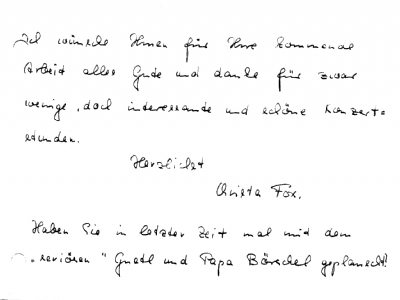 Ich wünsche Ihnen für Ihre kommende
Arbeit alles Gute und danke für zwar
wenige, doch interessante und schöne Konzert-
stunden.
Herzlichst
Christa Fox.
Haben Sie in letzter Zeit mal mit dem
"seriösen" Gnatl und Papa Börschel geplanscht?